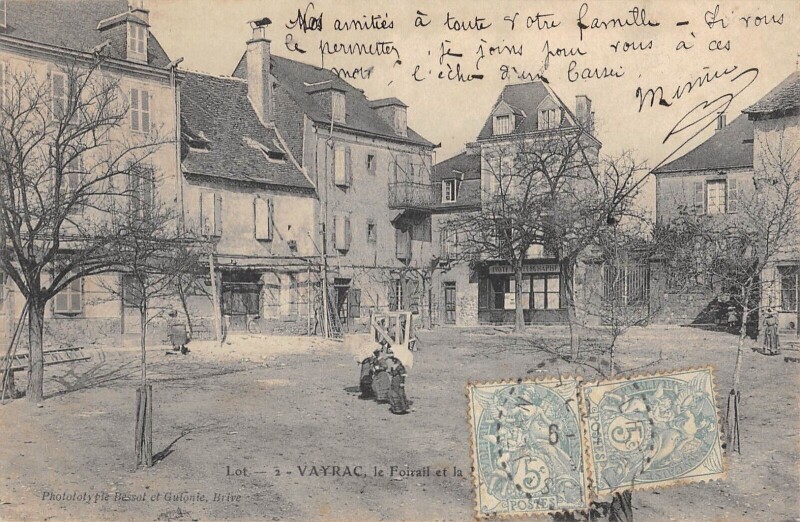 Nos amitiés à toute votre famille - Si vous
le permettez, je joins pour vous à ces
mots, l'écho d'un baiser.
Lot — 2 - VAYRAC, le Foirail et la
5c
POSTES
6
5c
Phototypie Bessot et Guionie, Brive